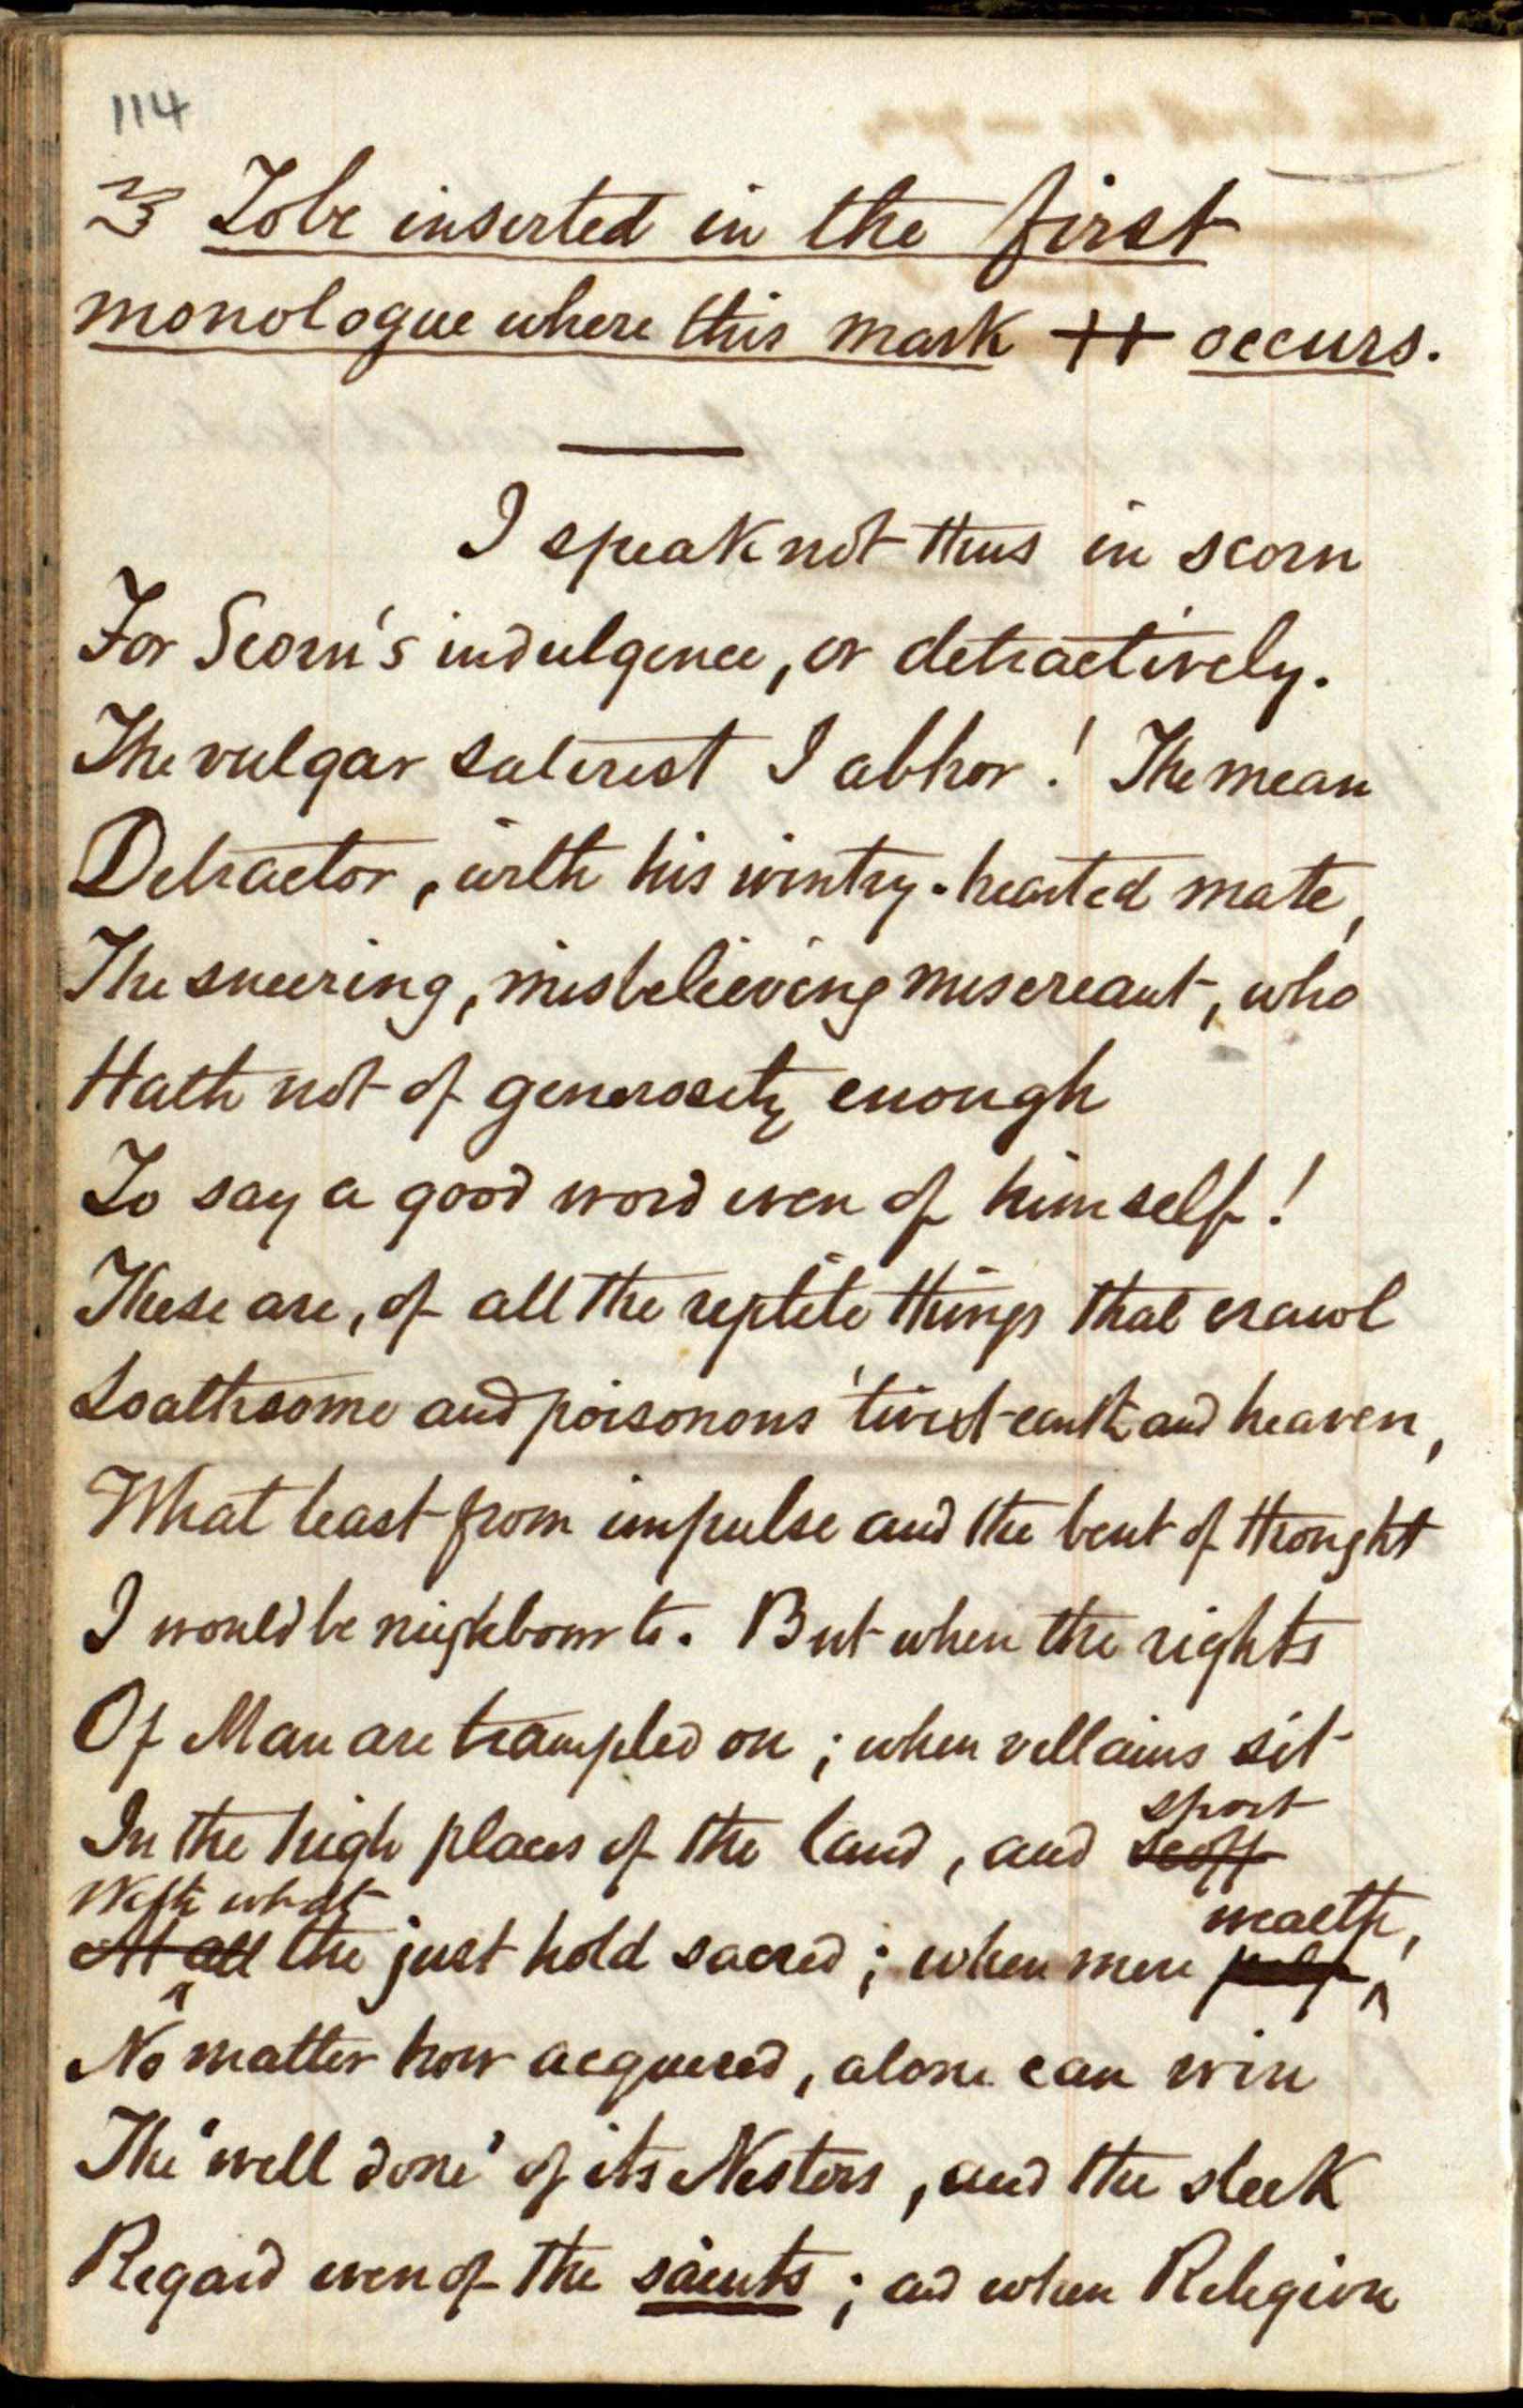 114
To be inserted in the first
monologue where this mark ++ occurs.
I speak not thus in scorn
For Scorn's indulgence, or detractively.
The vulgar satirist I abhor! The mean
Detractor, with his wintry-hearted mate,
The sneering, misbelieving miscreant, who
Hath not of generosity enough
To say a good word even of himself!
These are, of all the reptile things that crawl
Loathsome and poisonous 'twixt earth and heaven,
What least from impulse and the bent of thought
I would be neighbour to. But when the rights
Of Man are trampled on; when villains sit
sport
In the high places of the land, and scoff
With what wealth,
At all the just hold sacred; when mere pelf,
No matter how acquired, alone can win
The 'well done' of its Nestors, and the sleek
Regard even of the saints; and when Religion